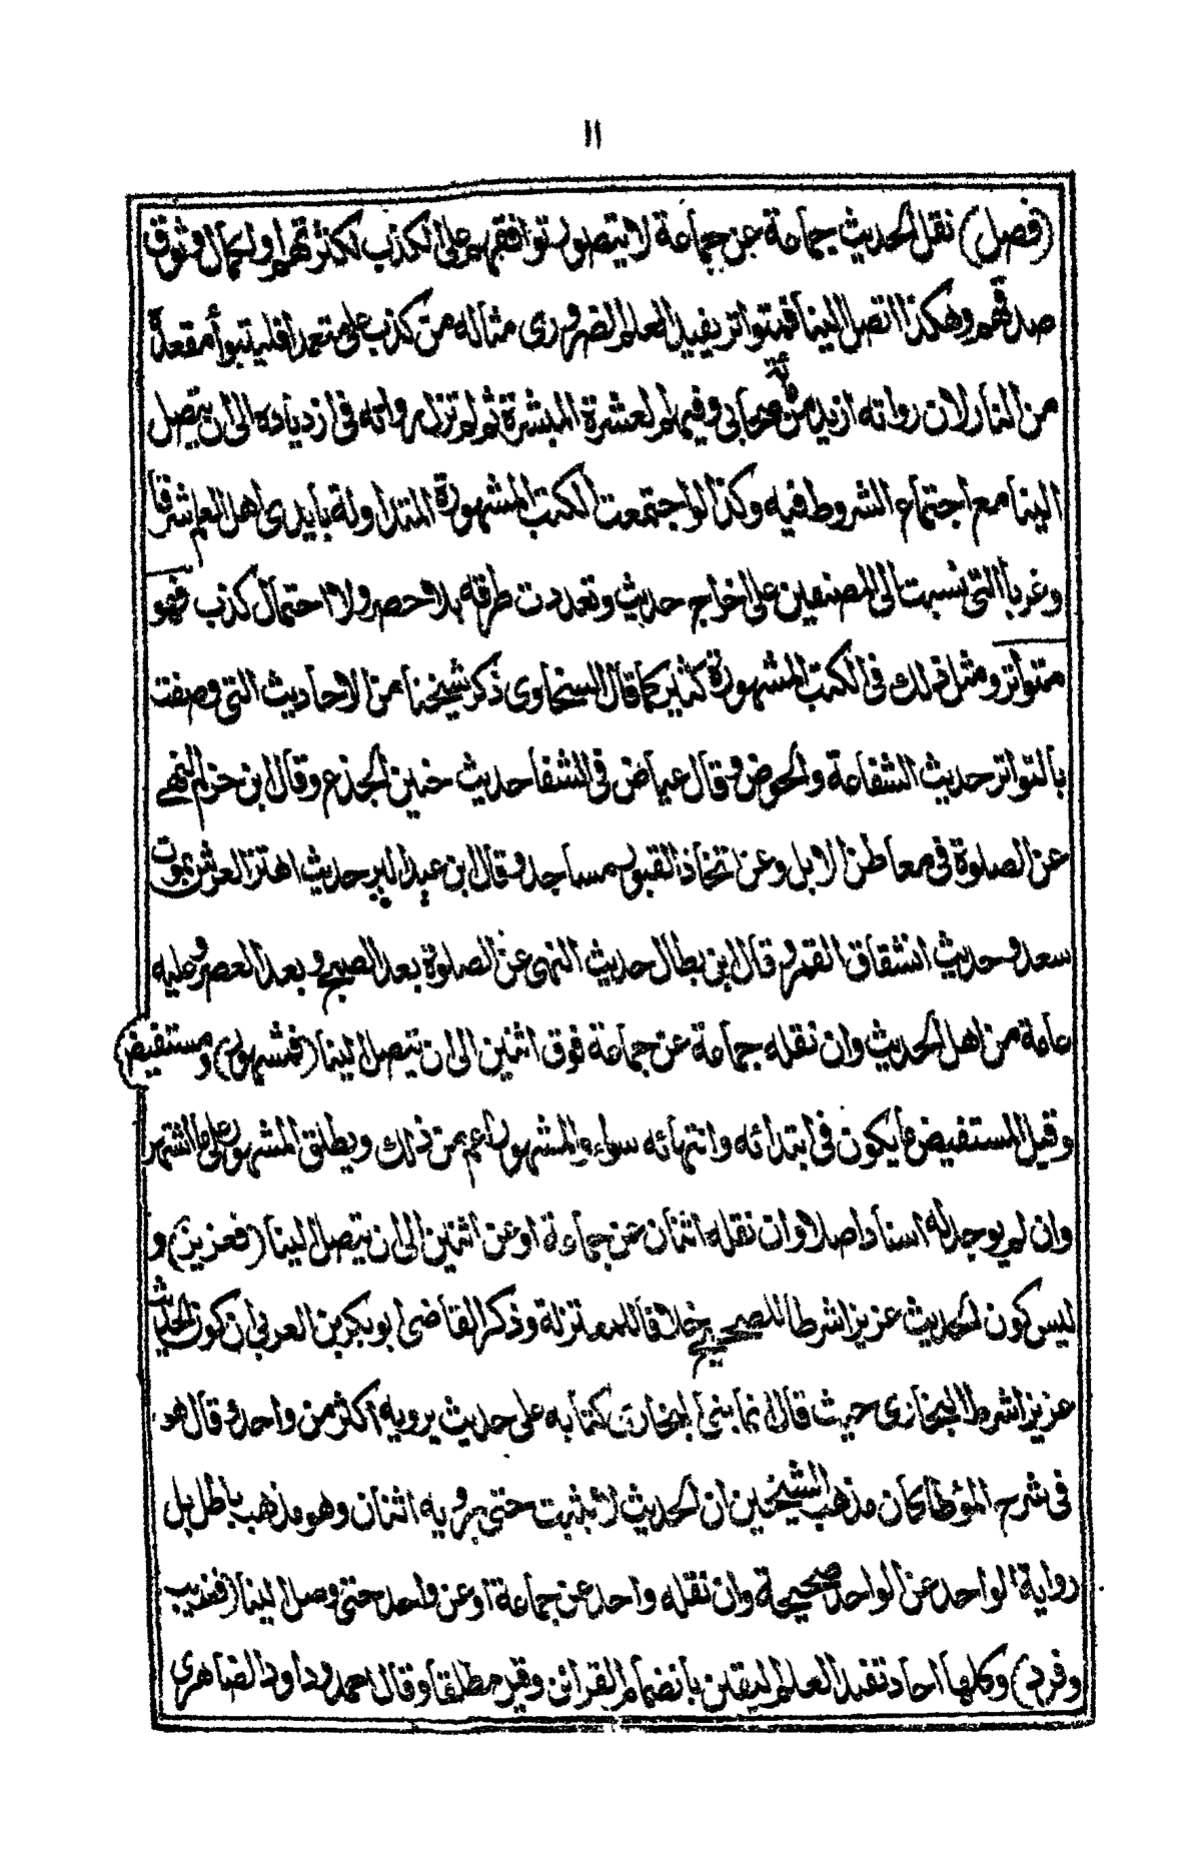 ١١
(فصل) نقل الحديث جماعة عن جماعة لا يتصور توافقهم على الكذب لكثرتهم او لكمال وثوق
صدقهم وهكذا اتصل الينا فمتواتر يفيد العلم الضروري مثاله من كذب على متعمدا فليتبوأ مقعدة
من النار لان رواته ازيد من مائة صحابي وفيهم العشرة المبشرة ثم لم تزل رواته في ازدياده الى ان يتصل
الينا مع اجتماع الشروط فيه وكذا لو اجتمعت الكتب المشهورة المتداولة بايدى اهل العلم شرقا
وغربا التي نسبت الى المصنفين على اخراج حديث وتعددت طرقه بلا حصر ولا احتمال كذب فهو
متواتر ومثل ذلك في الكتب المشهورة كثير كما قال السخاوى ذكر شيخنا من الاحاديث التي وصفت
بالتواتر حديث الشفاعة والحوض وقال عياض في الشفا حديث حنين الجذع وقال ابن حزم النهي
عن الصلوة في معاطن الابل وعن اتخاذ القبور مساجد وقال ابن عبد البر حديث اهتز العرش بموت
سعد وحديث انشقاق القمر وقال ابن بطال حديث النهى عن الصلوة بعد الصبح وبعد العصر وعليه
عامة من اهل الحديث وان نقله جماعة عن جماعة فوق اثنين الى ان يتصل الينا (فمشهور) ومستفيض
وقيل المستفيض ما يكون في ابتدائه وانتهائه سواء والمشهور اعم من ذلك ويطلق المشهور على ما اشتهر
وان لم يوجد له اسناد اصلا وان نقله اثنان عن جماعة او عن اثنين الى ان يتصل الينا (فعزيز) و
ليس كون الحديث عزيزا شرطا للصحيح خلافا للمعتزلة وذكر القاضى ابو بكر بن العربي ان كون الحديث
عزيزا شرط البخارى حيث قال انما بنى البخارى كتابه على حديث يرويه اكثر من واحد وقال هو
في شرح المؤطا كان مذهب الشيخين ان الحديث لا يثبت حتى يرويه اثنان وهو مذهب باطل بل
رواية الواحد عن الواحد صحيحة وان نقله واحد عن جماعة او عن واحد حتى وصل الينا (فغريب
وفرد) وكلها احاد تفيد العلم اليقين بانضمام القرائن وقيل مطلقا وقال احمد وداود الضاهري